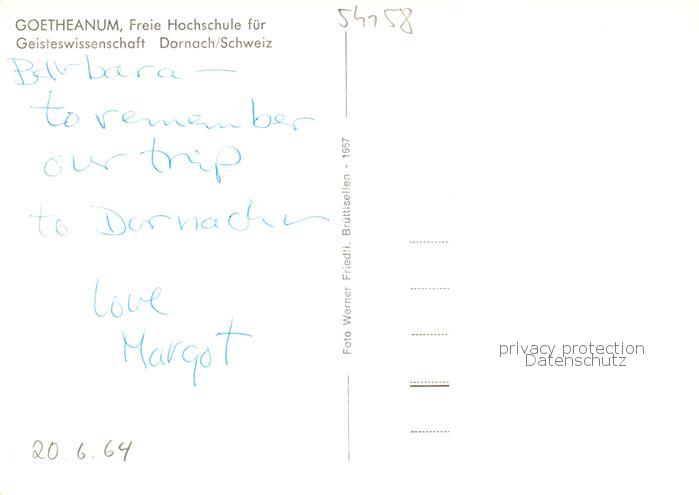 GOETHEANUM, Freie Hochschule für
Geisteswissenschaft Dornach/Schweiz
Barbara —
to remember
our trip
to Dornach
love
Margot
20.6.64
Foto Werner Friedli, Brüttisellen - 1657
privacy protection
Datenschutz